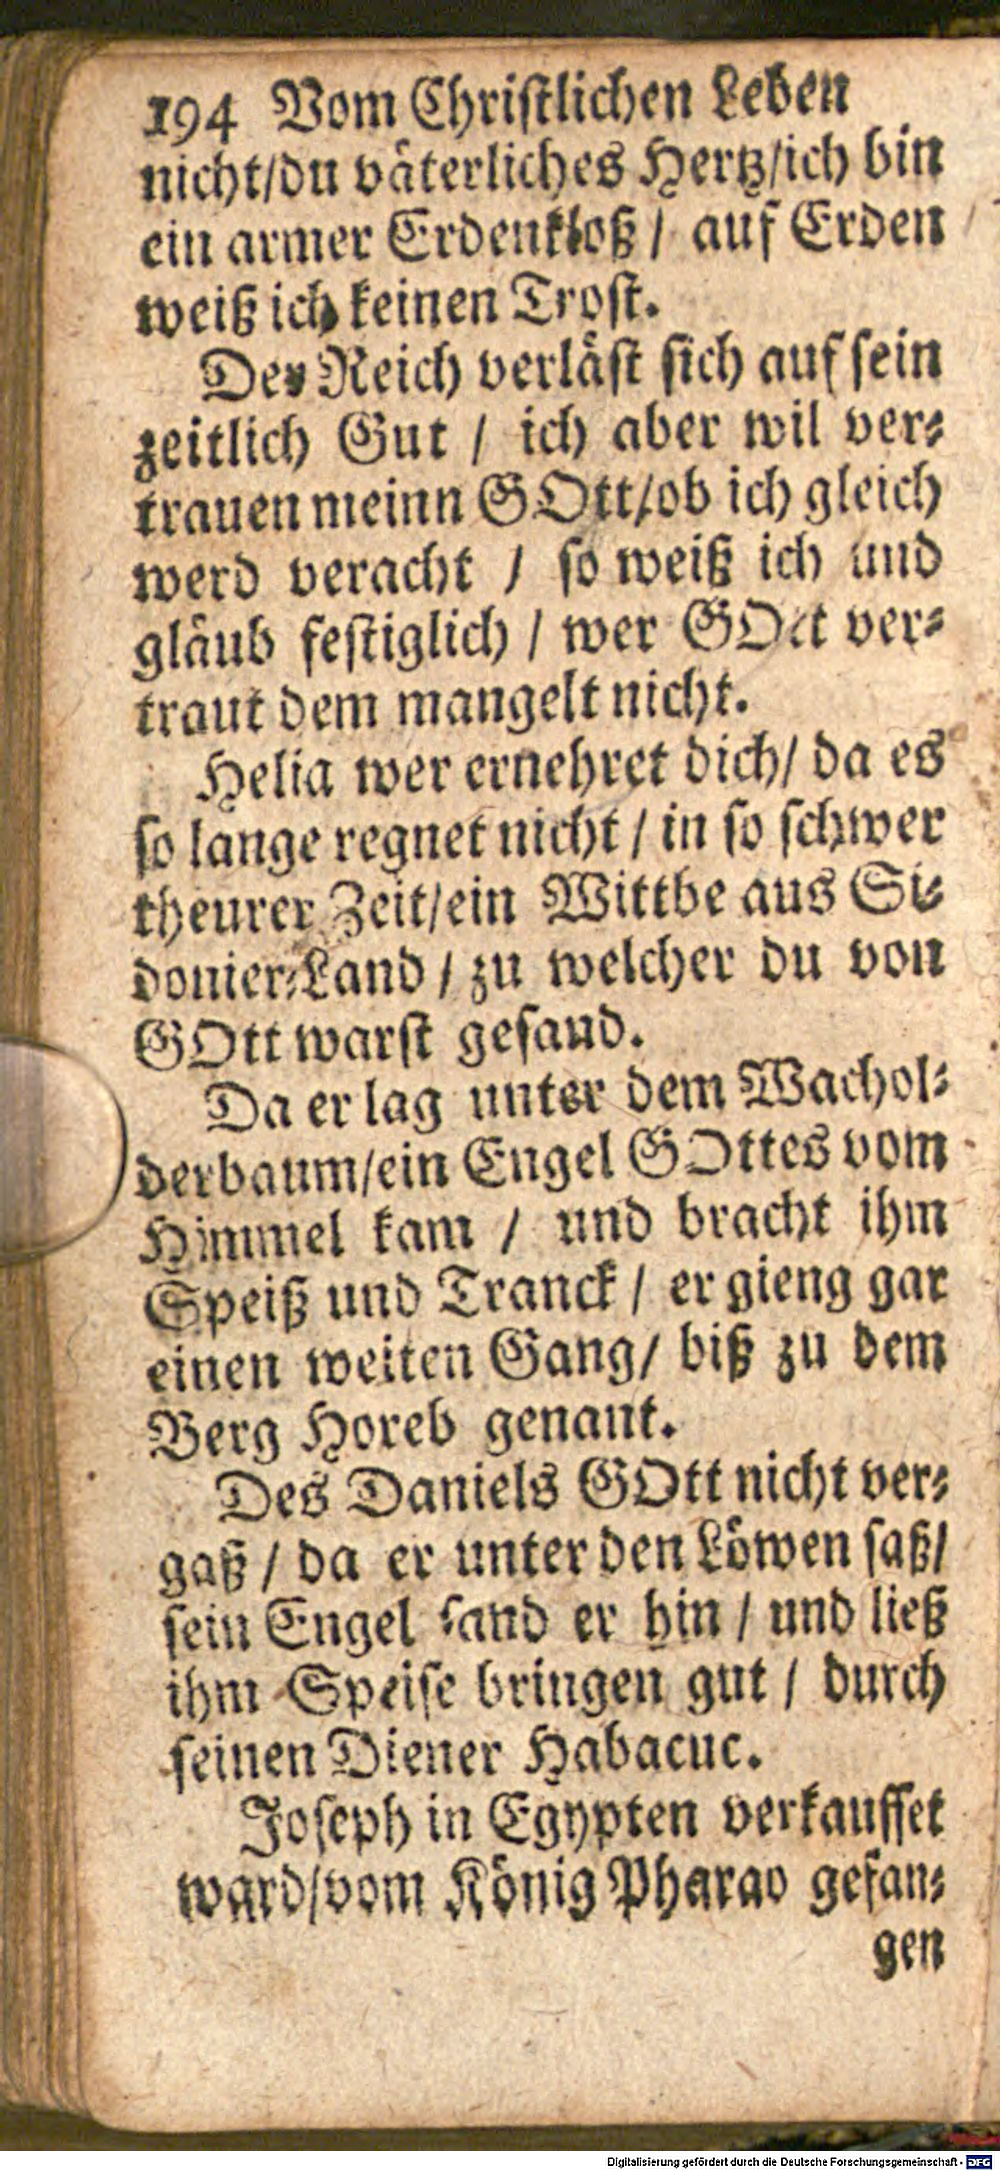 194 Vom Christlichen Leben
nicht/du väterliches Hertz/ich bin
ein armer Erdenkloß / auf Erden
weiß ich keinen Trost.
Der Reich verläst sich auf sein
zeitlich Gut / ich aber wil ver-
trauen meinn GOtt/ob ich gleich
werd veracht / so weiß ich und
gläub festiglich / wer GOtt ver-
traut dem mangelt nicht.
Helia wer ernehret dich/ da es
so lange regnet nicht / in so schwer
theurer Zeit/ein Wittbe aus Si-
donier-Land / zu welcher du von
GOtt warst gesand.
Da er lag unter dem Wachol-
derbaum/ein Engel GOttes vom
Himmel kam / und bracht ihm
Speiß und Tranck / er gieng gar
einen weiten Gang/ biß zu dem
Berg Horeb genant.
Des Daniels GOtt nicht ver-
gaß / da er unter den Löwen saß/
sein Engel sand er hin / und ließ
ihm Speise bringen gut / durch
seinen Diener Habacuc.
Joseph in Egypten verkauffet
ward/vom König Pharao gefan-
gen
Digitalisierung gefördert durch die Deutsche Forschungsgemeinschaft - DFG